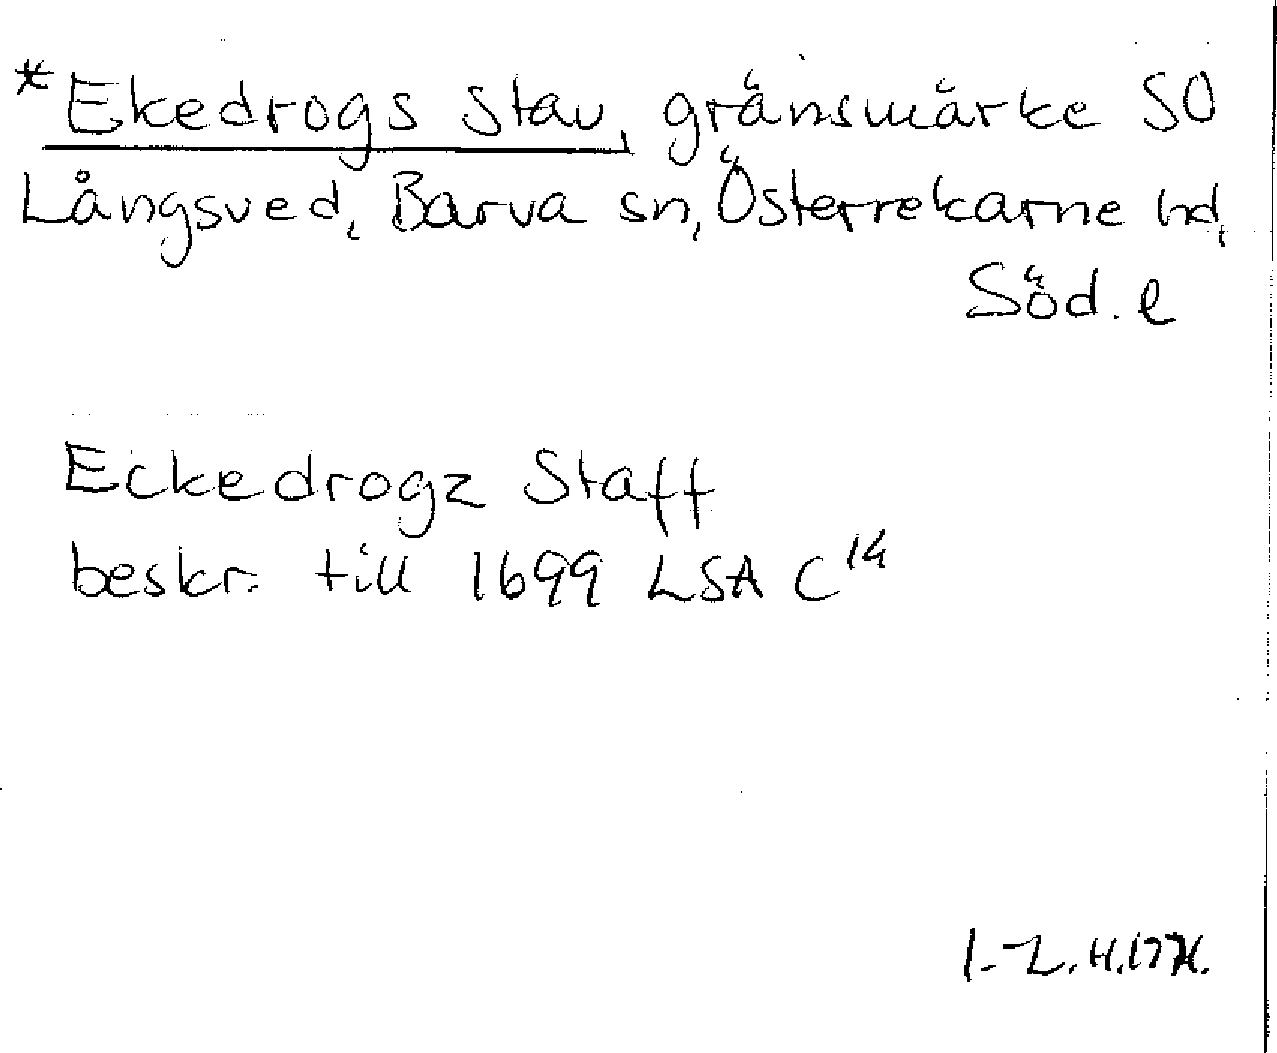 *Ekedrogs stav, gränsmärke SO
Långsved, Barva sn, Österrekarne hd,
Söd. l
Eckedrogz Staff
beskr. till 1699 LSA C¹⁴